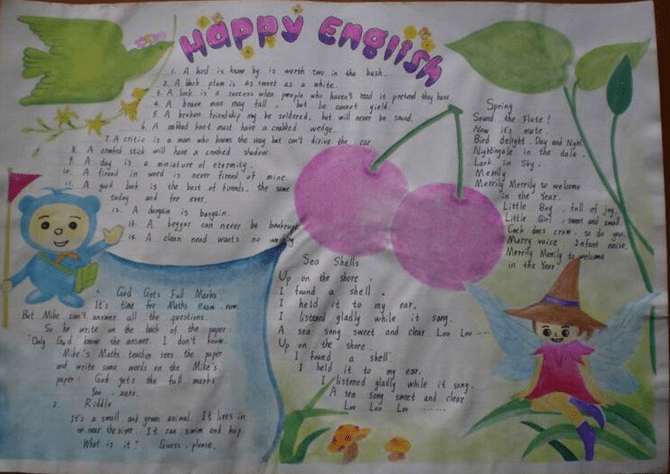 Happy English
1. A bird is know by is worth two in the bush.
2. A black plum is as sweet as a white.
3. A book is a success when people who haven't read it pretend they have.
4. A brave man may fall, but he cannot yield.
5. A broken friendship may be soldered, but will never be sound.
6. A crabbed knot must have a crabbed wedge.
7. A critic is a man who knows the way but can't drive the car.
8. A crooked stick will have a crooked shadow.
9. A day is a miniature of eternity.
10. A friend in word is never friend of mine.
11. A good book is the best of friends, the same
today and for ever.
12. A bargain is bargain.
13. A beggar can never be bankrupt
14. A clean hand wants no washing
1. God Gets Full Marks
It's time for Maths exam now.
But Mike can't answer all the questions.
So he write on the back of the paper
"Only God know the answer. I don't know.
Mike's Maths teacher sees the paper
and write some words on the Mike's
paper: God gets the full marks
You. zero.
2. Riddle
It's a small and green animal. It lives in
or near the river. It can swim and hop.
What is it? Guess, please.
Sea Shells
Up on the shore,
I found a shell,
I held it to my ear.
I listened gladly while it song.
A sea song sweet and clear Loo Loo ---
Up on the shore
I found a shell
I held it to my ear.
I listened gladly while it song.
A sea song sweet and clear
Loo Loo Loo ......
Spring
Sound the Flute!
Now it's mute.
Bird delight. Day and Night
Nightingale in the dale.
Lark in Sky.
Merrily
Merrily Merrily to welcome
in the Year.
Little Boy, full of joy.
Little Girl sweet and small
Cock does crow, so do you.
Merry voice. Infant noise,
Merrily Merrily to welcome
in the Year.